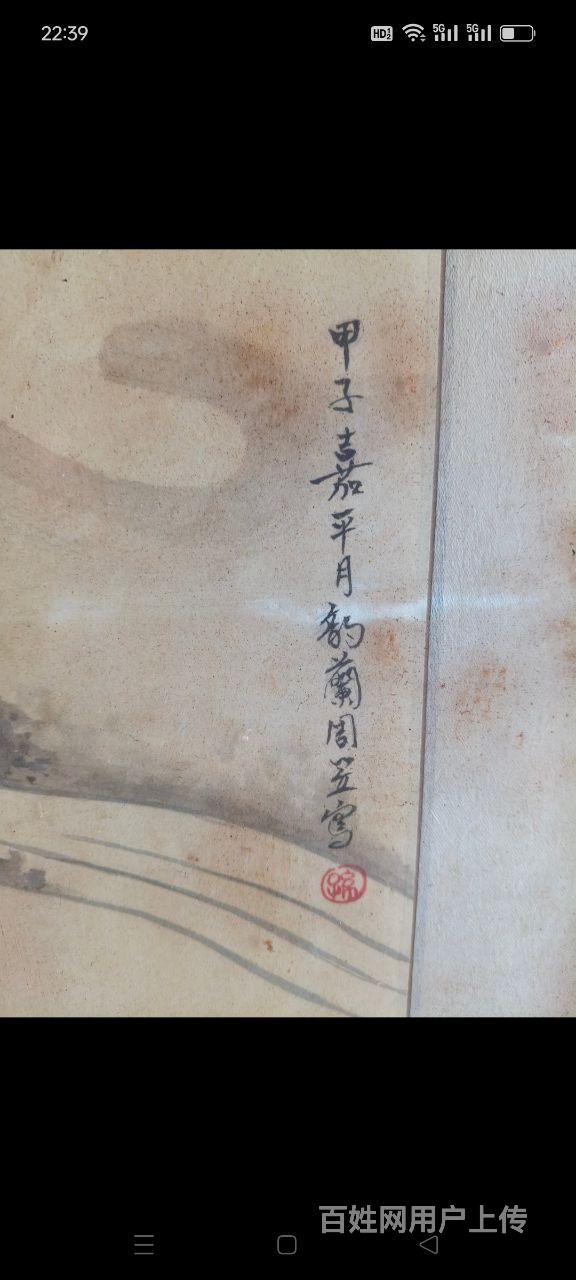 22:39
HD 1 2 5G 5G
甲子嘉平月韵蘭周笠寫
百姓网用户上传